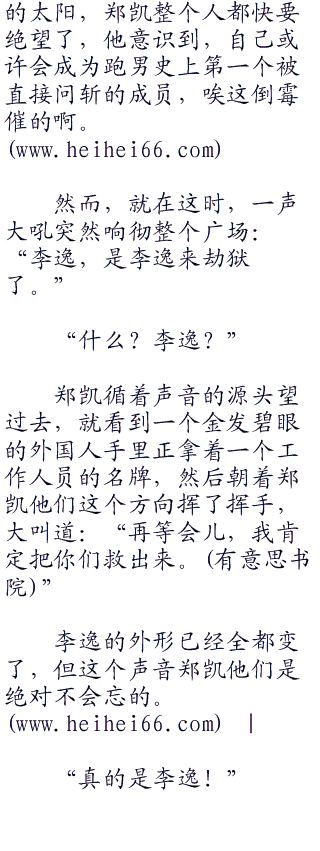 的太阳，郑凯整个人都快要
绝望了，他意识到，自己或
许会成为跑男史上第一个被
直接问斩的成员，唉这倒霉
催的啊。
(www.heihei66.com)
然而，就在这时，一声
大吼突然响彻整个广场：
“李逸，是李逸来劫狱
了。”
“什么？李逸？”
郑凯循着声音的源头望
过去，就看到一个金发碧眼
的外国人手里正拿着一个工
作人员的名牌，然后朝着郑
凯他们这个方向挥了挥手，
大叫道：“再等会儿，我肯
定把你们救出来。(有意思书
院)”
李逸的外形已经全都变
了，但这个声音郑凯他们是
绝对不会忘的。
(www.heihei66.com) |
“真的是李逸！”